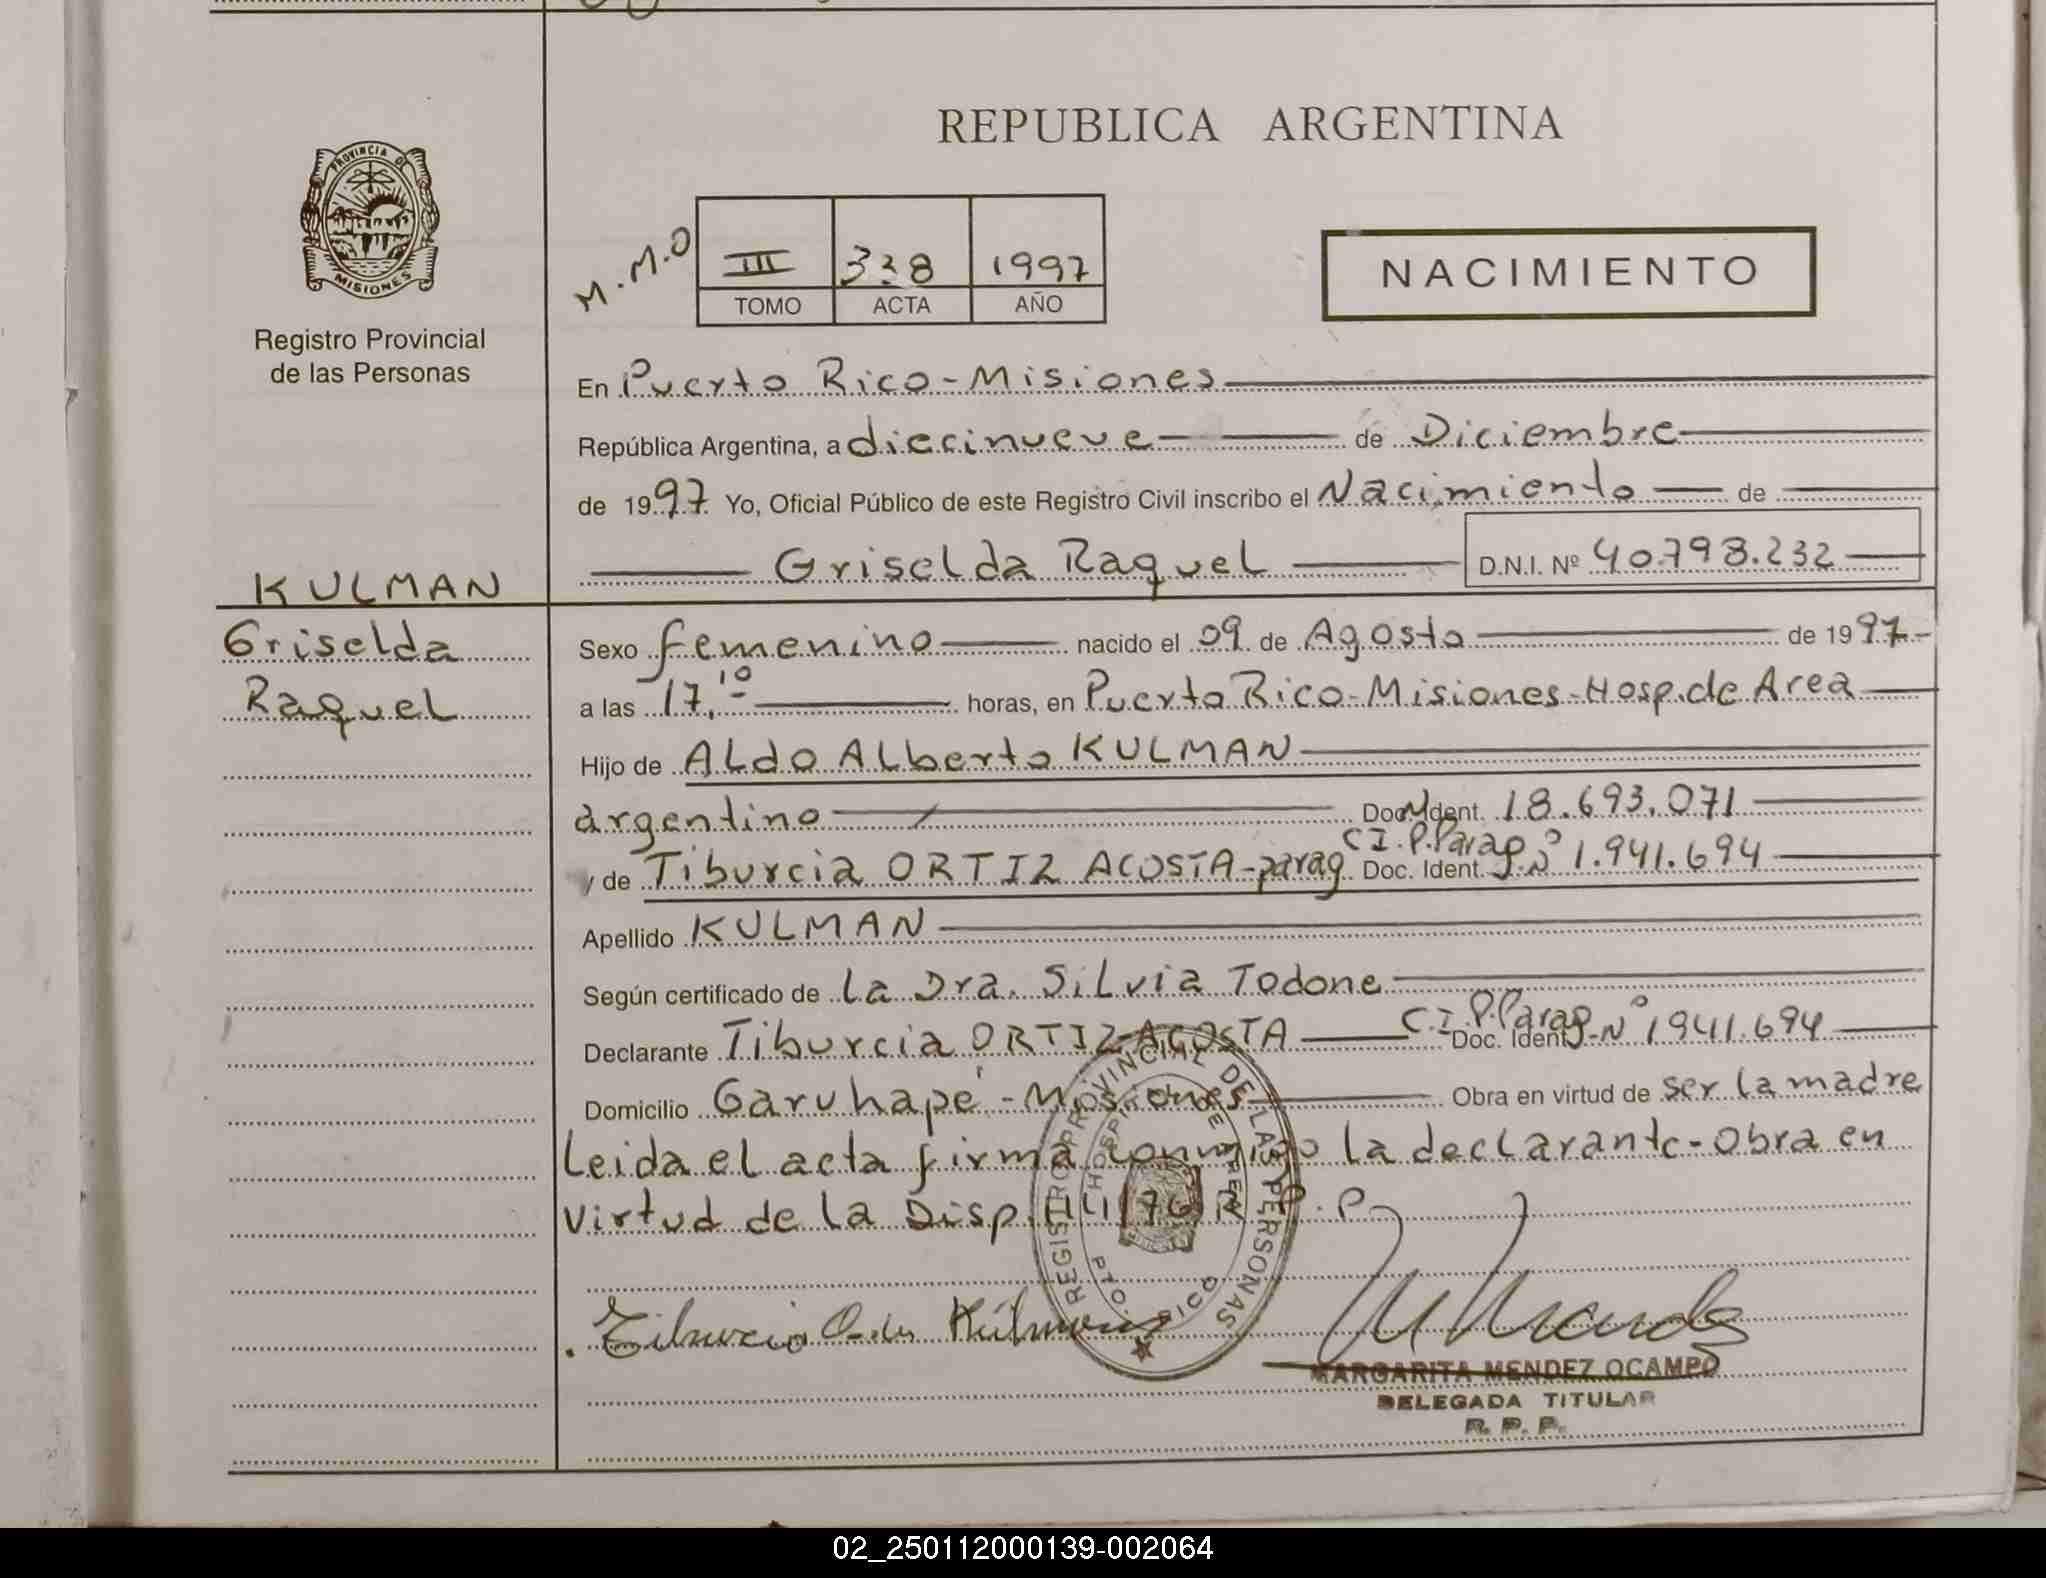 REPUBLICA ARGENTINA
PROVINCIA DE
MISIONES
Registro Provincial
de las Personas
M.M.O
III 338 1997
TOMO ACTA AÑO
NACIMIENTO
En Puerto Rico-Misiones
República Argentina, a diecinueve de Diciembre
de 1997 Yo, Oficial Público de este Registro Civil inscribo el Nacimiento de
Griselda Raquel D.N.I. Nº 40.798.232
KULMAN
Griselda
Raquel
Sexo femenino nacido el 09 de Agosto de 1997-
a las 17,10 horas, en Puerto Rico-Misiones-Hosp.de Area
Hijo de Aldo Alberto KULMAN
argentino Doc. Ident. 18.693.071
y de Tiburcia ORTIZ ACOSTA-parag Doc. Ident. C I.P.Parag Nº 1.941.694
Apellido KULMAN
Según certificado de la Dra. Silvia Todone
Declarante Tiburcia ORTIZ ACOSTA Doc. Ident. C.I.P.Parag-Nº 1941.694
Domicilio Garuhapé-Misiones Obra en virtud de ser la madre
Leida el acta firma conmigo la declarante-Obra en
virtud de la Disp. R.P.P
REGISTRO PROVINCIAL DE LAS PERSONAS
PTO. RICO
MARGARITA MENDEZ OCAMPO
DELEGADA TITULAR
R. P. P.
02_250112000139-002064